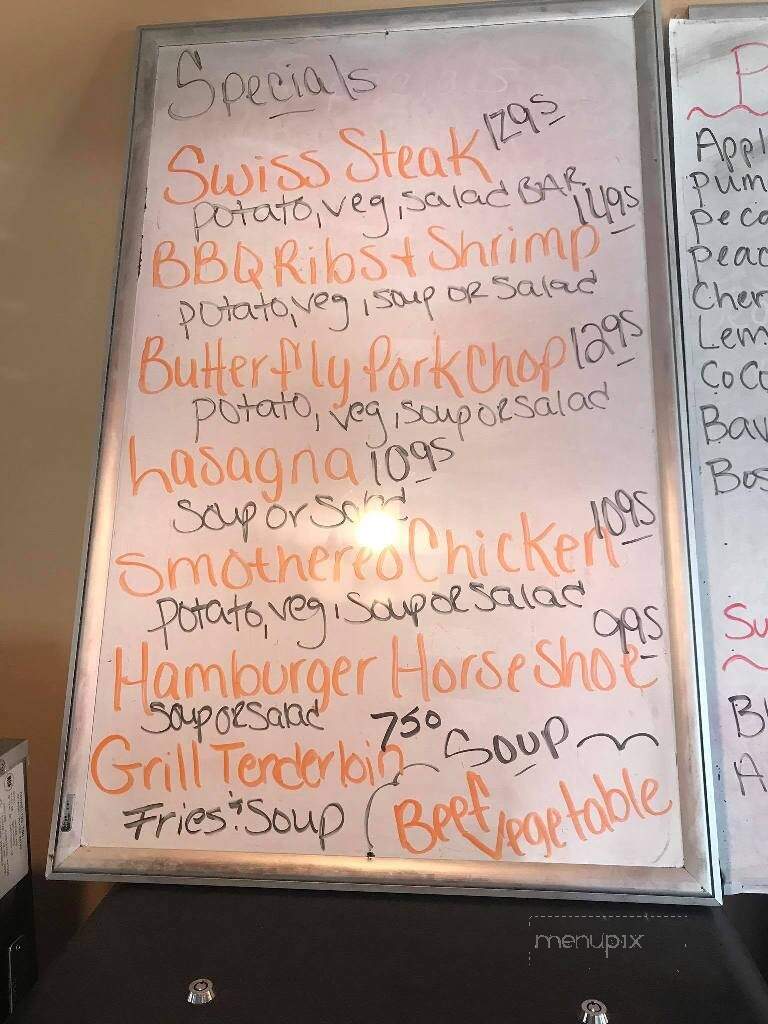 Specials
Swiss Steak 1295
potato, veg, salad BAR
BBQ Ribs + Shrimp 1495
potato, veg, soup OR salad
Butterfly Pork Chop 1295
potato, veg, soup or salad
Lasagna 1095
Soup or Salad
Smothered Chicken 1095
potato, veg, soup or salad
Hamburger Horse Shoe 995
soup or salad
Grill Tenderloin 750
Fries + Soup
Soup
Beef Vegetable
menupix